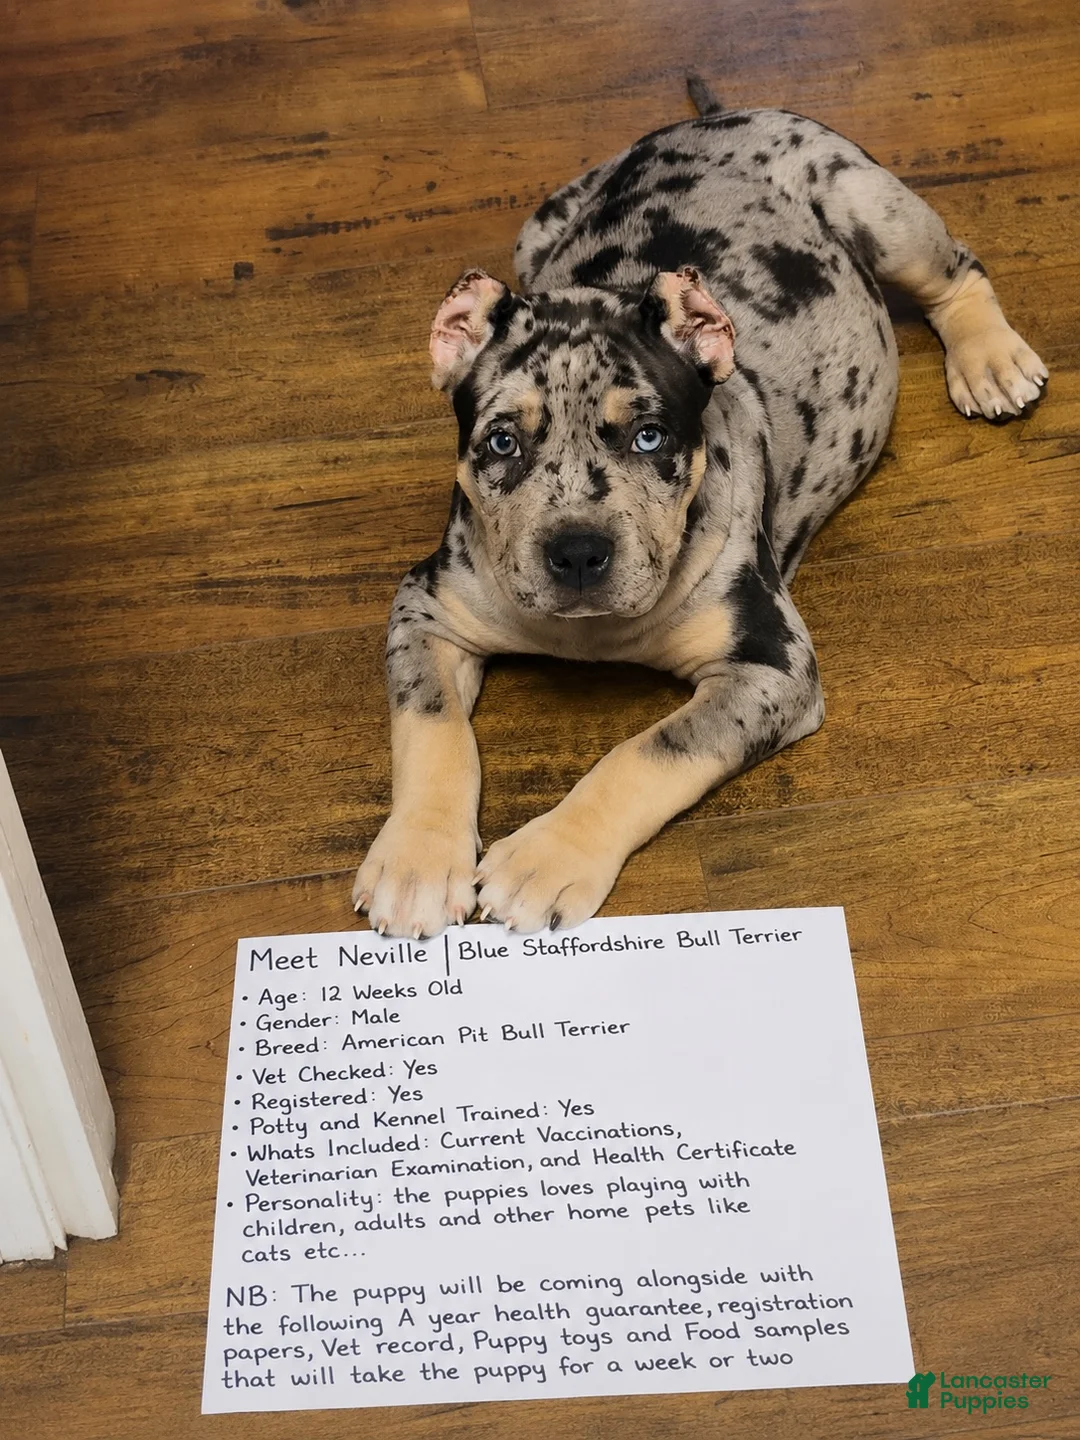 Meet Neville | Blue Staffordshire Bull Terrier
• Age: 12 Weeks Old
• Gender: Male
• Breed: American Pit Bull Terrier
• Vet Checked: Yes
• Registered: Yes
• Potty and Kennel Trained: Yes
• Whats Included: Current Vaccinations,
Veterinarian Examination, and Health Certificate
• Personality: the puppies loves playing with
children, adults and other home pets like
cats etc...
NB: The puppy will be coming alongside with
the following A year health guarantee, registration
papers, Vet record, Puppy toys and Food samples
that will take the puppy for a week or two
Lancaster
Puppies